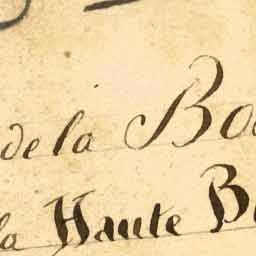 de la Bo
la Haute B